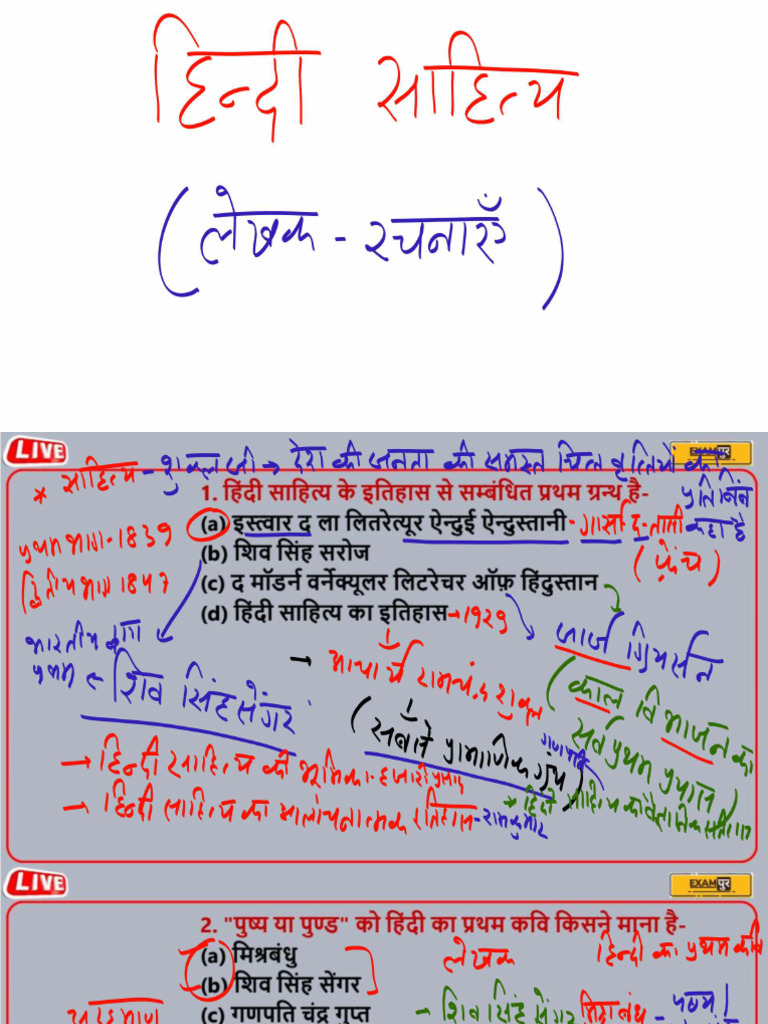 हिन्दी साहित्य
(लेखक - रचनाएँ)
LIVE
EXAMपुर
* साहित्य - शुक्ल जी → देश की जनता की समस्त चित्त वृत्तियों का
प्रतिबिंब
कहा है
1. हिंदी साहित्य के इतिहास से सम्बंधित प्रथम ग्रन्थ है-
(a) इस्त्वार द ला लितरेत्यूर ऐन्दुई ऐन्दुस्तानी - गार्सा द-तासी
(फ्रेंच)
प्रथम भाग - 1839
द्वितीय भाग 1847
(b) शिव सिंह सरोज
(c) द मॉडर्न वर्नेक्यूलर लिटरेचर ऑफ़ हिंदुस्तान
(d) हिंदी साहित्य का इतिहास → 1929
भारतीय
प्रथम
शिव सिंह सेंगर
→ आचार्य रामचंद्र शुक्ल
जार्ज ग्रियर्सन
(काल विभाजन का
सर्वप्रथम प्रयास)
(सबसे प्रामाणिक ग्रंथ)
गणपति
→ हिन्दी साहित्य की भूमिका - हजारी प्रसाद
* हिंदी साहित्य का वैज्ञानिक इतिहास
→ हिन्दी साहित्य का आलोचनात्मक इतिहास - रामकुमार
LIVE
EXAMपुर
2. "पुष्य या पुण्ड" को हिंदी का प्रथम कवि किसने माना है-
(a) मिश्रबंधु
लेखक हिन्दी का प्रथम कवि
(b) शिव सिंह सेंगर
(c) गणपति चंद्र गुप्त
- शिव सिंह सेंगर